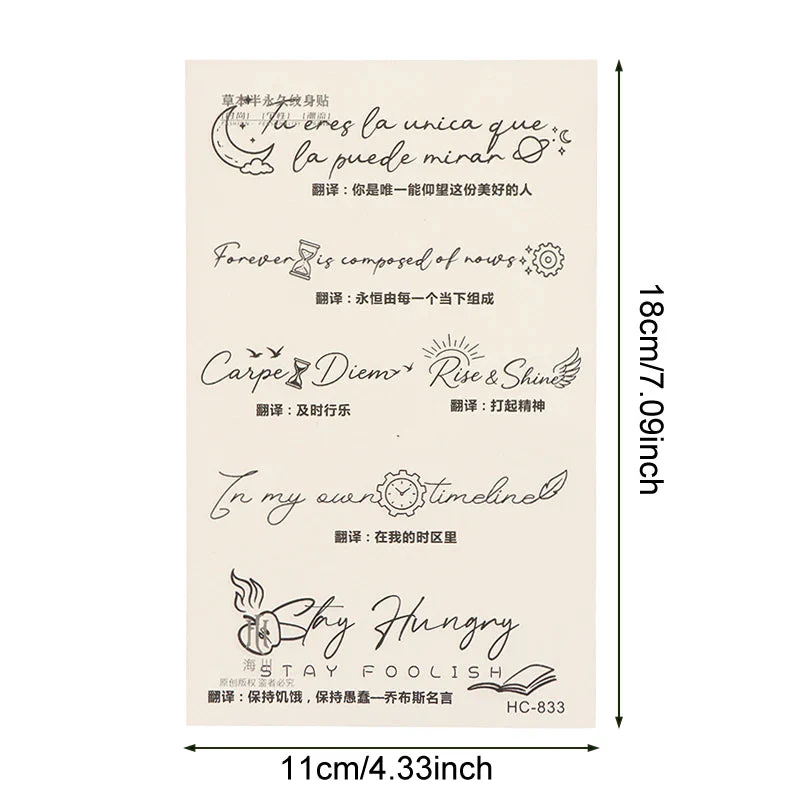 草本半永久纹身贴
Tu eres la unica que
la puede mirar
翻译：你是唯一能仰望这份美好的人
Forever is composed of nows
翻译：永恒由每一个当下组成
Carpe Diem
翻译：及时行乐
Rise & Shine
翻译：打起精神
In my own timeline
翻译：在我的时区里
Stay Hungry
STAY FOOLISH
原创版权 盗者必究
翻译：保持饥饿，保持愚蠢—乔布斯名言
HC-833
18cm/7.09inch
11cm/4.33inch